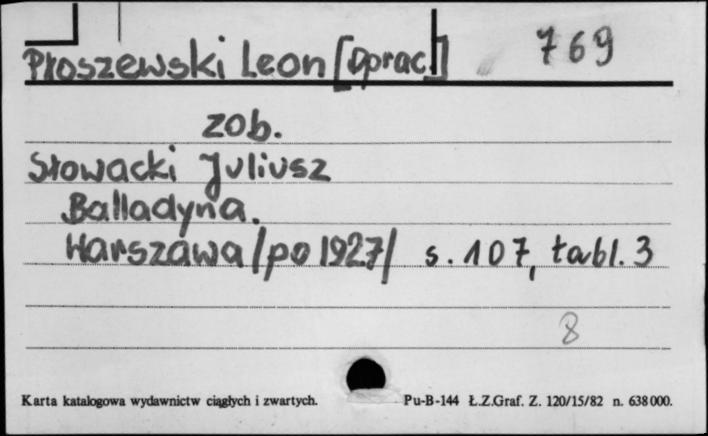 Płoszewski Leon [Oprac.] 769
zob.
Słowacki Juliusz
Balladyna.
Warszawa /po 1927/ s. 107, tabl. 3
8
Karta katalogowa wydawnictw ciągłych i zwartych. Pu-B-144 Ł.Z.Graf. Z. 120/15/82 n. 638 000.